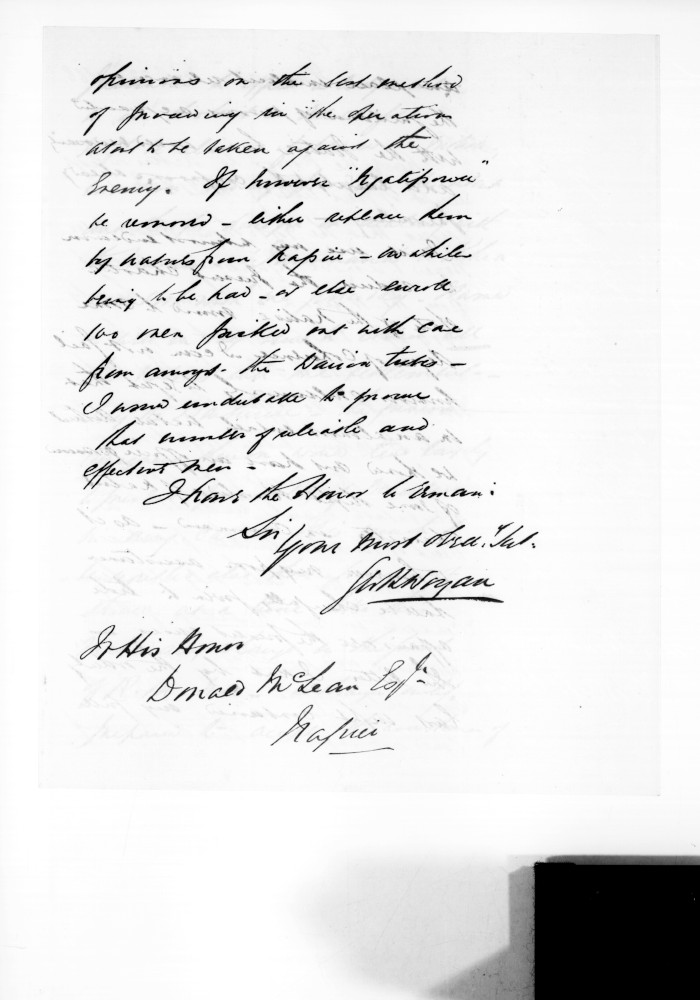 opinions on the best method
of proceeding in the operations
about to be taken against the
Enemy. If however "Ngatiporou"
be removed - either replace them
by natives from Napier - or whites
being to be had - or else enroll
100 men picked out with care
from amongst the Wairoa tribes -
I would undertake to procure
that number of reliable and
effective men -
I have the Honor to remain
Sir
Your most obedt. Sert.
To His Honor
Donald McLean Esqr.
Napier